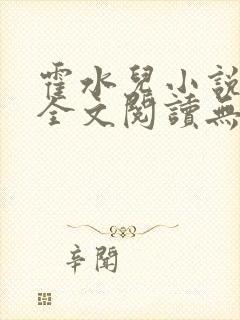 霍水兒小說
全文閱讀無
辛聞